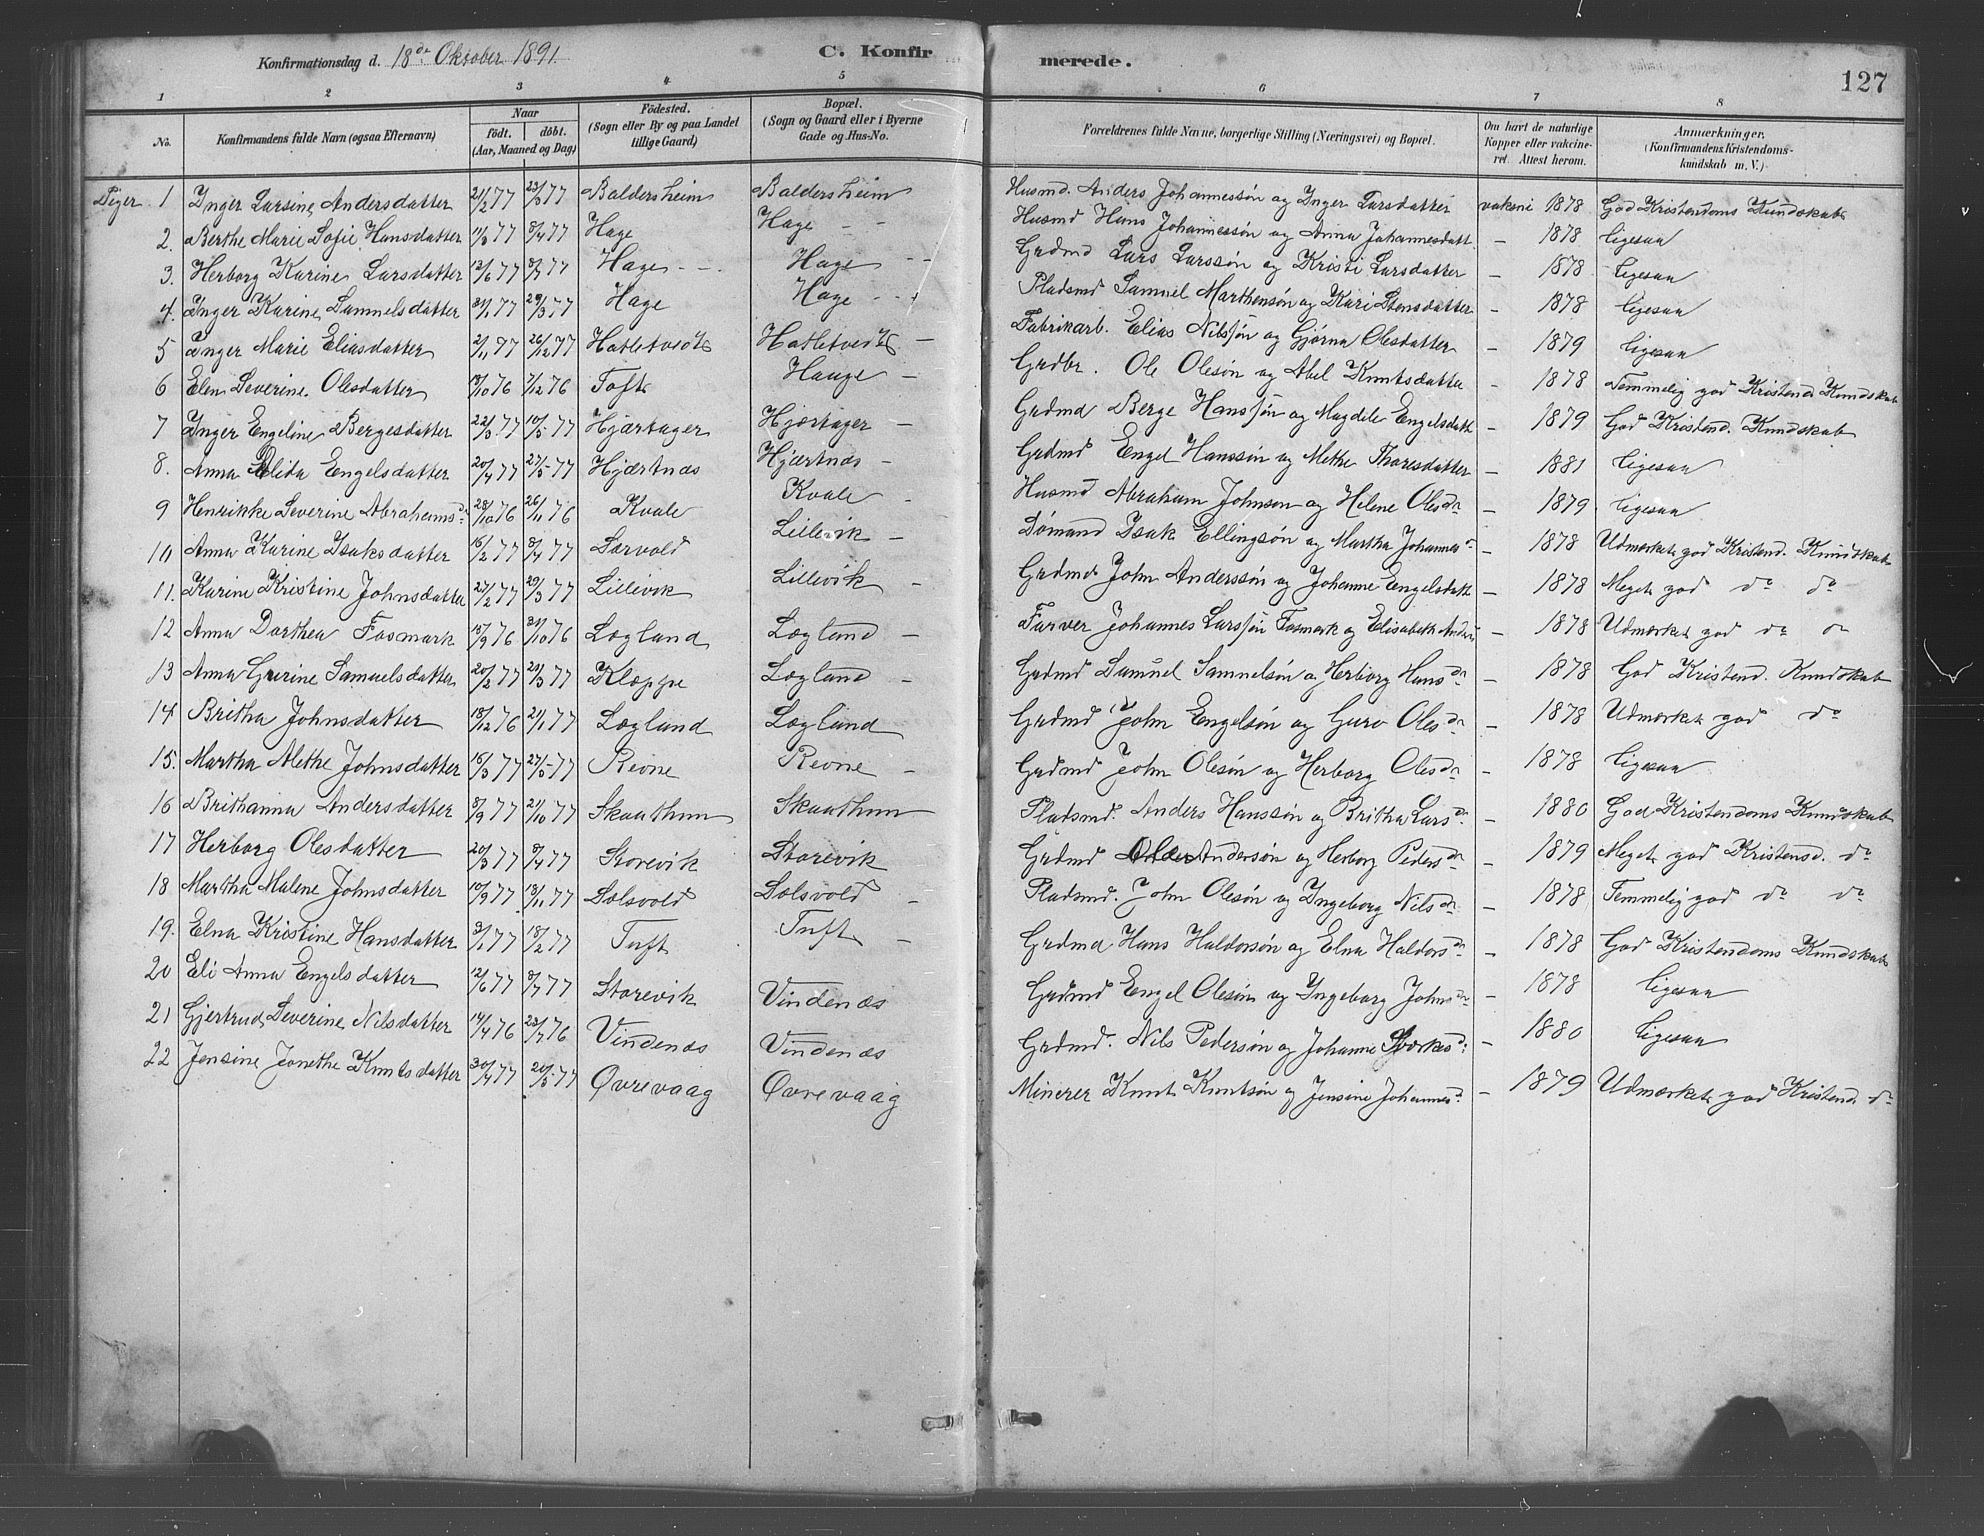 Konfirmationsdag d. 18de Oktober 1891. C. Konfirmerede. 127
1 2 3 4 5 6 7 8
No. Konfirmandens fulde Navn (ogsaa Efternavn) Naar født. døbt. (Aar, Maaned og Dag) Fødested. (Sogn eller By og paa Landet tillige Gaard) Bopæl. (Sogn og Gaard eller i Byerne Gade og Hus-No. Forældrenes fulde Navne, borgerlige Stilling (Næringsvei) og Bopæl. Om havt de naturlige Kopper eller vakcineret. Attest herom. Anmærkninger. (Konfirmandens Kristendomskundskab m. V.)
Piger 1 Inger Larsine Andersdatter 21/2 77 23/3 77 Baldersheim Baldersheim Husmd. Anders Johannessøn og Inger Larsdatter vaksni 1878 God Kristendoms Kundskab
2. Berthe Marie Sofie Hansdatter 11/3 77 8/4 77 Hage Hage - - Husmd Hans Johannessøn og Anna Johannesdatt. - 1878 ligesaa
3. Herborg Karine Larsdatter 13/6 77 8/7 77 Hage - - Hage - - Grdmd Lars Larssøn og Kristi Larsdatter - 1878 ligesaa
4. Inger Karine Samuelsdatter 31/1 77 29/3 77 Hage Hage - - Pladsmd Samuel Marthensøn og Kari Stensdatter - 1878 ligesaa
5 Inger Marie Eliasdatter 2/11 77 26/12 77 Hatletvedt Hatletvedt - Fabrikarb. Elias Nilssøn og Gjørna Olesdatter - 1879 ligesaa
6 Elen Severine Olesdatter /10 76 7/12 76 Toft Hauge - Grdbr. Ole Olesøn og Abel Knutsdatter - 1878 Temmelig god Kristend Kundskab
7 Inger Engeline Bergesdatter 22/3 77 10/5 77 Hjærtager Hjærtager - Grdmd Berge Hanssøn og Magdele Engelsdatt - 1879 God Kristend. Kundskab
8. Anna Elida Engelsdatter 20/4 77 27/5 77 Hjærtnæs Hjærtnæs - Grdmd Engel Hanssøn og Methe Thoresdatter - 1881 ligesaa
9 Henrikke Severine Abrahamsdr 28/10 76 26/11 76 Kvale Kvale - Husmd Abraham Johnson og Helene Olesdr - 1879 ligesaa
10 Anna Karine Isaksdatter 16/2 77 8/4 77 Særvold Lillevik - Sømand Isak Ellingsøn og Martha Johannesdr - 1878 Udmærket god Kristend. Kundskab
11. Karine Kristine Johnsdatter 27/2 77 29/3 77 Lillevik Lillevik - Grdmd John Anderssøn og Johanne Engelsdatt - 1878 Meget god do do
12 Anna Dorthea Fosmark 15/9 76 31/10 76 Lægland Lægland - Farver Johannes Larssøn Fosmark og Elisabeth Anders - 1878 Udmærket god do do
13 Anna Gurine Samuelsdatter 20/2 77 21/3 77 Klæppe Lægland - Grdmd Samuel Samuelsøn og Herborg Hansdr - 1878 God Kristend. Kundskab
14 Britha Johnsdatter 18/12 76 21/1 77 Lægland Lægland Grdmd John Engelsøn og Guro Olesdr - 1878 Udmærket god do
15. Martha Methe Johnsdatter 16/3 77 27/5 77 Revne Revne - Grdmd John Olesøn og Herborg Olesdr - 1878 ligesaa
16 Brithanna Andersdatter 8/9 77 21/10 77 Skaathun Skaathun Pladsmd. Anders Hanssøn og Britha Larsdr. - 1880 God Kristendoms Kundskab
17 Herborg Olesdatter 20/3 77 8/4 77 Storevik Storevik Grdmd Ole Andersøn og Herborg Pedersdr - 1879 Meget god Kristend. do
18 Martha Malene Johnsdatter 10/9 77 13/11 77 Solsvold Solsvold - Pladsmd. John Olesøn og Ingeborg Nilsdr - 1878 Temmelig god do do
19. Elna Kristine Hansdatter 3/1 77 18/2 77 Tuft Tuft - Grdmd Hans Haldorsøn og Elna Haldorsdr - 1878 God Kristendoms Kundskab
20 Eli Anna Engelsdatter 12/6 77 8/7 77 Storevik Vindenæs Grdmd Engel Olesøn og Ingeborg Johnsdr - 1878 ligesaa
21 Gjertrud Severine Nilsdatter 14/4 76 23/7 76 Vindenæs Vindenæs Grdmd. Nils Pedersøn og Johanne - 1880 ligesaa
22 Jensine Jonethe Knutsdatter 30/4 77 20/5 77 Øvrevaag Øvrevaag Minerer Knut Knutsøn og Jensine Johannesd. - 1879 Udmærket god Kristend do